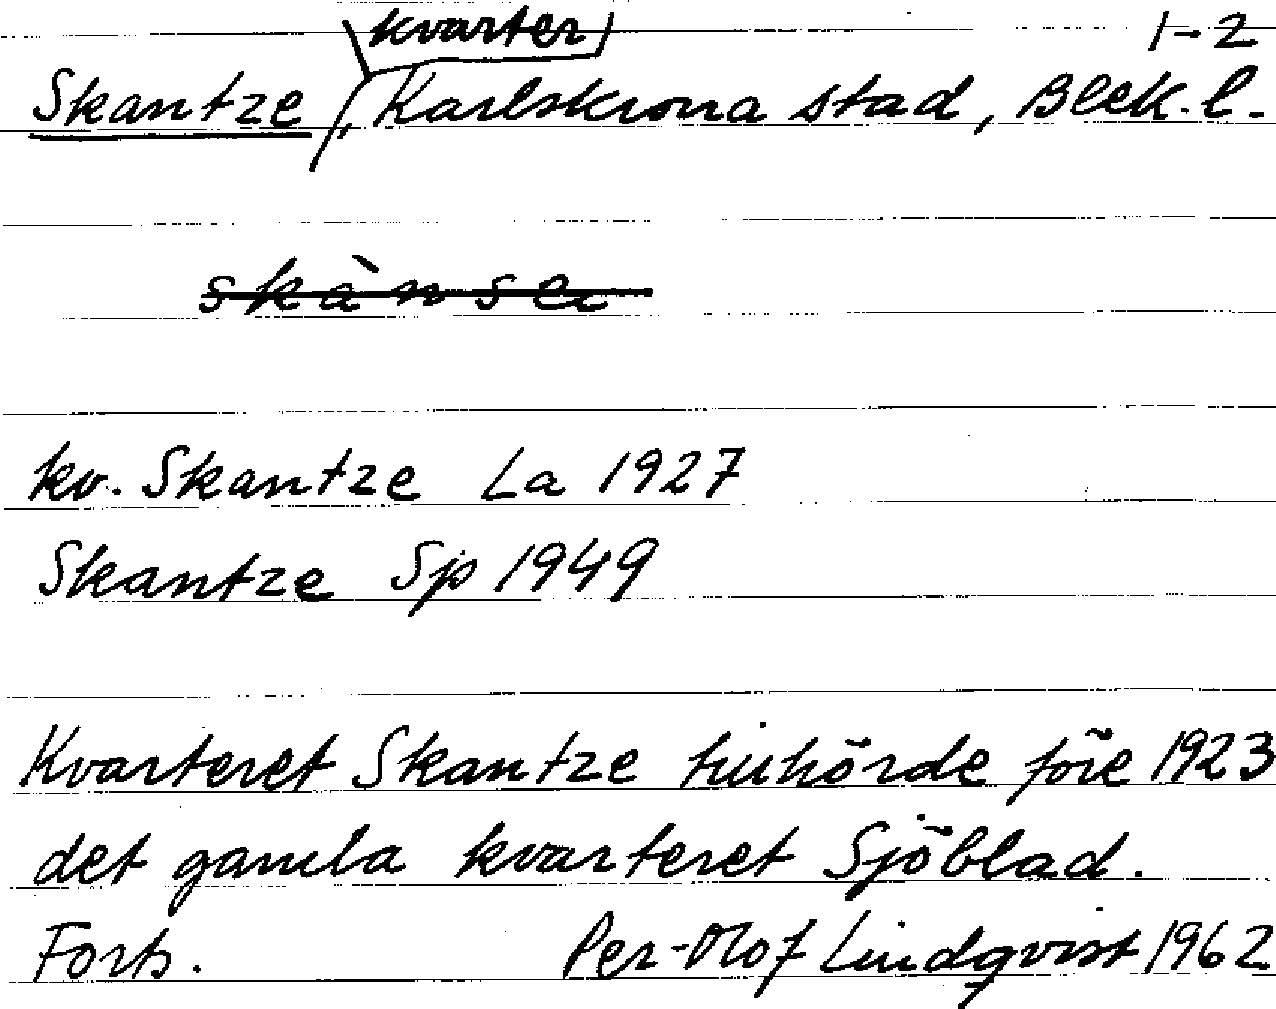 kvarter 1-2
Skantze, Karlskrona stad, Blek. l.
skànsen
kv. Skantze La 1927
Skantze Sp 1949
Kvarteret Skantze tillhörde före 1923
det gamla kvarteret Sjöblad.
Forts. Per-Olof Lindqvist 1962